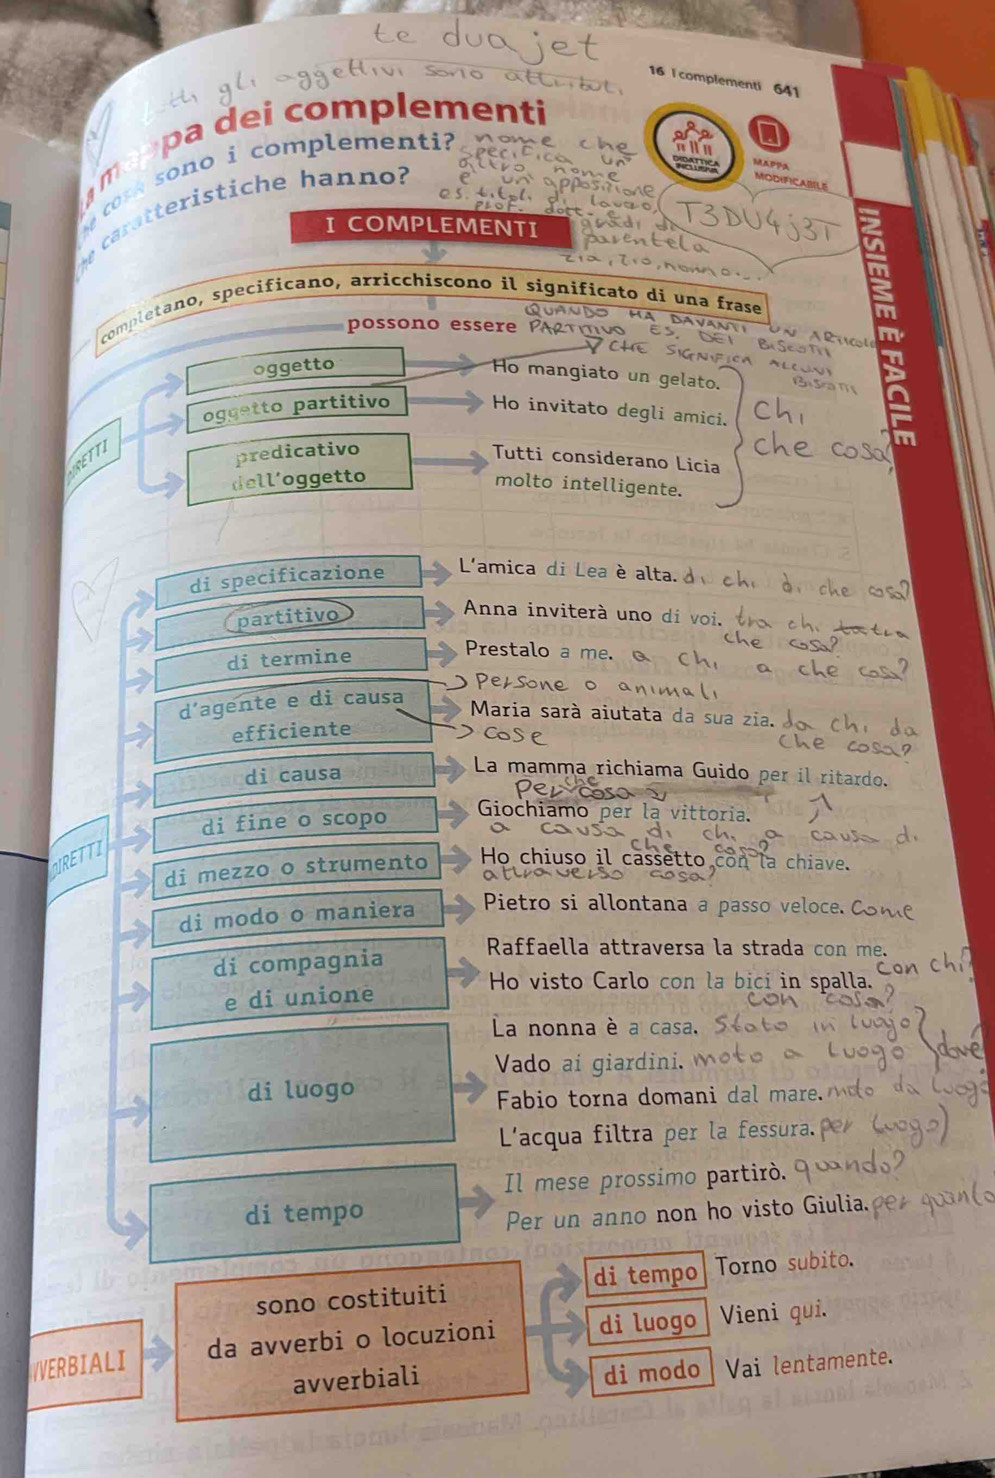 te dua jet
gli aggettivi sono attributi
16 I complementi 641
La mappa dei complementi
Che cosa sono i complementi?
Che caratteristiche hanno?
nome che
specifica un
altro nome
e un'apposizione
es. titoli di lavoro,
prof. dott. gradi di
parentela
zia, zio, nonno...
T3DU4j3T
DIDATTICA
INCLUSIVA
MAPPA
MODIFICABILE
INSIEME È FACILE
I COMPLEMENTI
completano, specificano, arricchiscono il significato di una frase
possono essere
QUANDO HA DAVANTI UN ARTICOLO
PARTITIVO ES. DEI BISCOTTI
CHE SIGNIFICA ALCUNI
BISCOTTI
DIRETTI
oggetto
Ho mangiato un gelato.
oggetto partitivo
Ho invitato degli amici.
chi
che cosa
predicativo
dell'oggetto
Tutti considerano Licia
molto intelligente.
INDIRETTI
di specificazione
L'amica di Lea è alta. di chi di che cosa?
partitivo
Anna inviterà uno di voi. tra chi tra
che cosa?
di termine
Prestalo a me. a chi a che cosa?
persone o animali
d'agente e di causa
efficiente
Maria sarà aiutata da sua zia. da chi da
che cosa?
cose
di causa
La mamma richiama Guido per il ritardo.
per che cosa
di fine o scopo
Giochiamo per la vittoria.
a causa di chi a causa di
che cosa?
di mezzo o strumento
Ho chiuso il cassetto con la chiave.
attraverso cosa?
di modo o maniera
Pietro si allontana a passo veloce. Come
di compagnia
e di unione
Raffaella attraversa la strada con me.
con chi?
Ho visto Carlo con la bici in spalla.
con cosa?
di luogo
La nonna è a casa. Stato in luogo
Vado ai giardini. moto a luogo
dove
Fabio torna domani dal mare. moto da luogo
L'acqua filtra per la fessura. per luogo
di tempo
Il mese prossimo partirò. quando?
Per un anno non ho visto Giulia. per quanto
AVVERBIALI
sono costituiti
da avverbi o locuzioni
avverbiali
di tempo Torno subito.
di luogo Vieni qui.
di modo Vai lentamente.